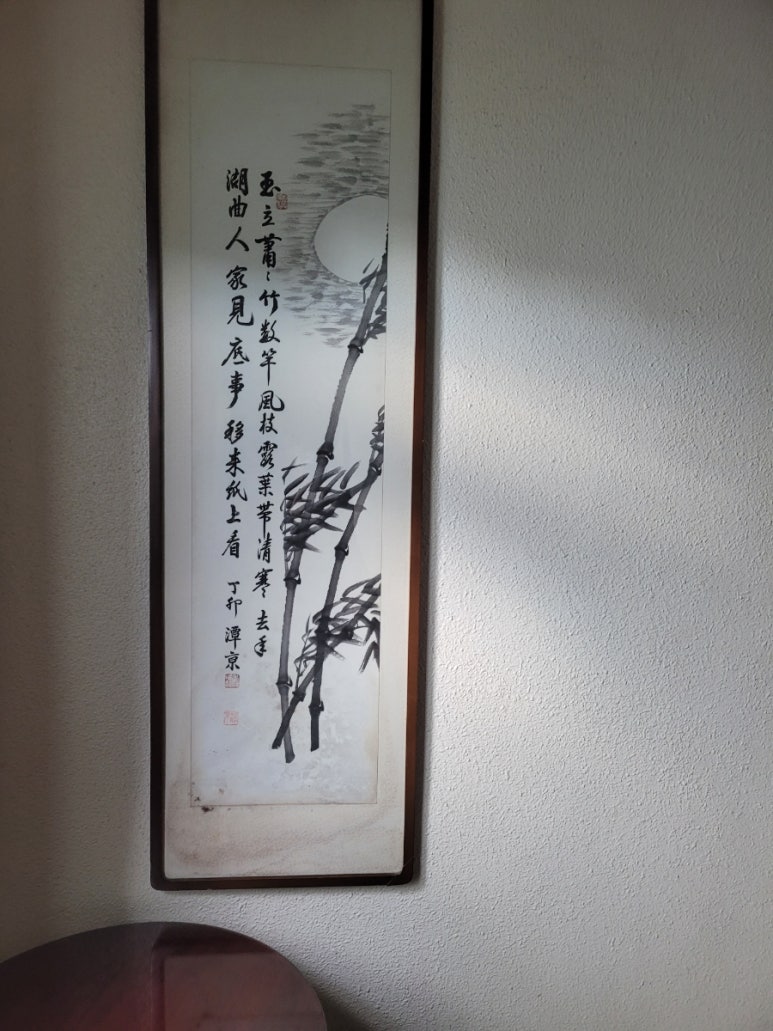 玉立蕭〻竹數竿風枝露葉帶清寒去年
湖曲人家見底事移来紙上看
丁卯 潭京